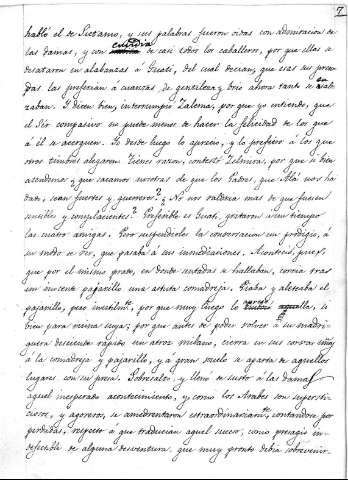 7
habló el de Suzamo, y sus palabras fueron oidas con admiracion de
las damas, y con envidia de casi todos los caballeros, por que ellas se
desataron en alabanzas á Guati, del cual decian, que esas sus pren-
das las preferian á cuantas de gentileza y brio ahora tanto se en-
zaban. Y dicen bien, interrumpió Zulema, por que yo entiendo, que
el ser compasivo no puede menos de hacer la felicidad de los que
á él se acerquen. Yo desde luego lo aprecio, y lo prefiero á los que
otros timbres alegaren. Tienes razon, contestó Zelmira, por que si bien
atendemos ¿que sacamos nosotras de que los Padres, que Alá nos ha
dado, sean fuertes y guerreros? ¿No nos valdria mas de que fuesen
sensibles y complacientes? Preferible es Guati, gritaron á un tiempo
las cuatro amigas. Pero suspendioles la conversacion un prodigio, á
su modo de ver, que pasaba á sus inmediaciones. Aconteció, pues,
que por el mismo prado, en donde sentadas se hallaban, corria tras
un inocente pajarillo una astuta comadreja. Piaba y aleteaba el
pajarillo, pero inutilmte, por que muy luego lo lla, si
bien para ruina suya; por que antes de poder volver á su madri-
guera desciende rapido un atroz milano, cierra en sus corvas uñas
á la comadreja y pajarillo, y á gran vuelo se aparta de aquellos
lugares con su presa. Sobresaltó, y llenó de susto á las damas
aquel inesperado acontecimiento, y como los Arabes son supersti-
ciosos, y agoreros, se amedrentaron estraordinariamte, contandose por
perdidas, respecto á que traducian aquel suceso, como presagio in-
defectible de alguna desventura, que muy pronto debia sobrevenir.